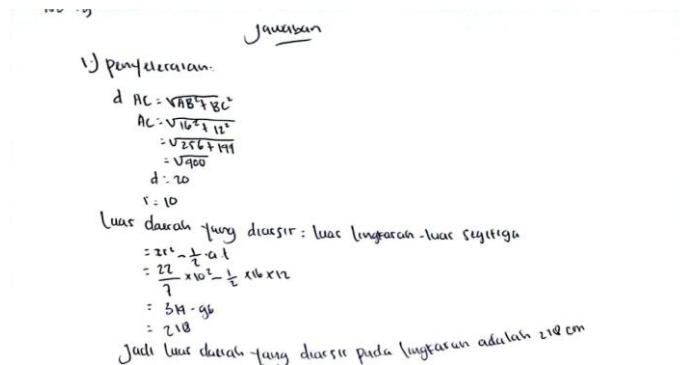 Jawaban
1.) penyelesaian.
d AC = √AB² + BC²
AC = √16² + 12²
= √256 + 144
= √400
d = 20
r = 10
luas daerah yang diarsir = luas lingkaran - luas segitiga
= πr² - 1/2 a.t
= 22/7 × 10² - 1/2 × 16 × 12
= 314 - 96
= 218
Jadi luas daerah yang diarsir pada lingkaran adalah 218 cm